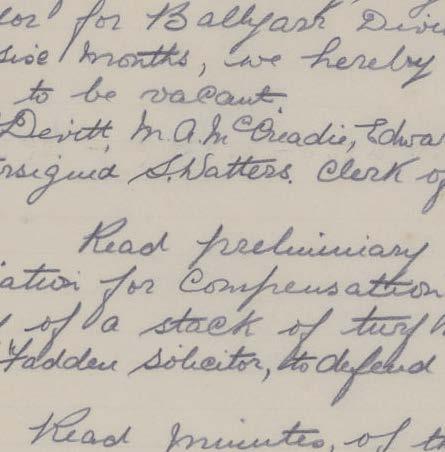 for Ballyark Divi
months, we hereby
to be vacant.
Devitt, M.A. McCreadie, Edwa
rsigned S. Watters. Clerk of
Read preliminary
ation for Compensation
of a stack of turf
Fadden Solicitor, to defend
Read minutes, of th